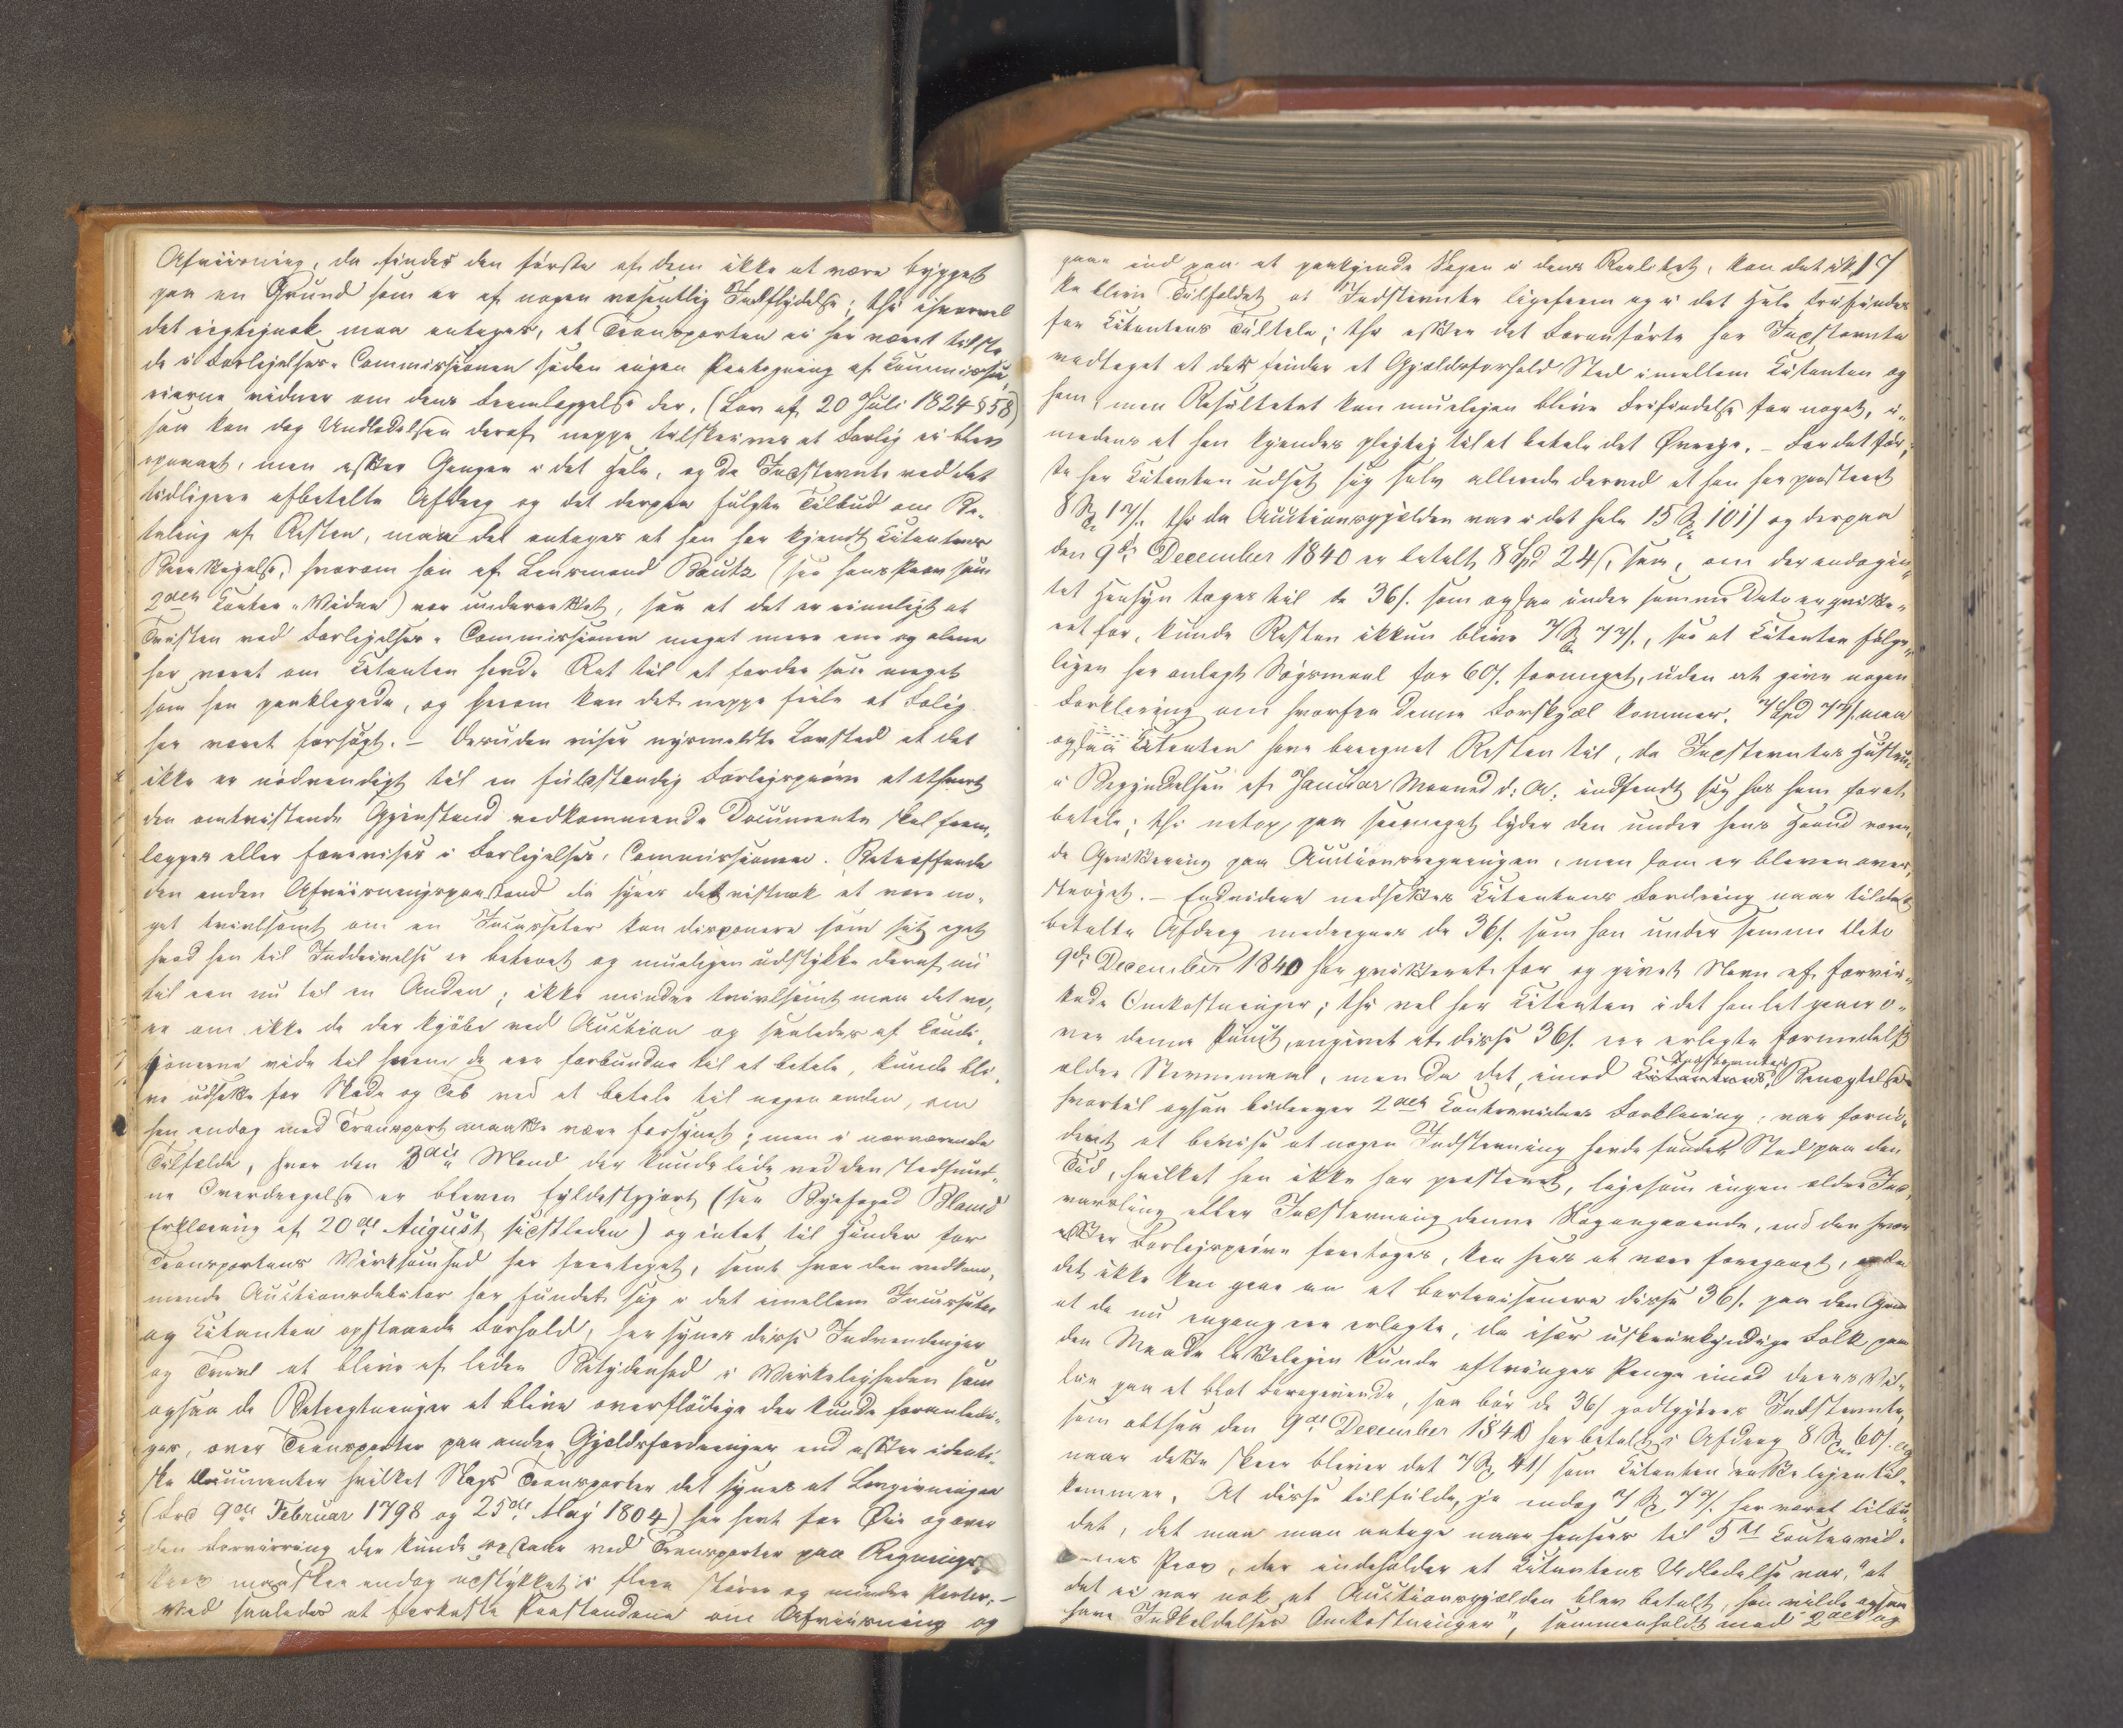 Afviisning, da findes den første af dem ikke at være bygget
paa en Grund som er af nogen væsentlig Indflydelse; thi ihvorvel
det rigtignok maa antages, at Transporten ei har været tilste-
de i Forligelses-Commissionen siden ingen Paategning af Commissai-
rierne vidner om dens Fremlæggelse der, (Lov af 20 Juli 1824 § 58)
saa kan dog Undladelsen deraf neppe tilskrives at Forlig ei blev
opnaaet, men efter Gangen i det Hele, og da Indstevnte ved det
tidligere afbetalte Afdrag og det derpaa fulgte Tilbud om Be-
taling af Resten, maa det antages at han har kjendt Citantens
, hvorom han af Lensmand Bautz (see hans Prov som
2det Contra-Vidne) var underrettet, saa at det er rimeligt at
Tvisten ved Forligelses-Commissionen meget mere ene og alene
har været om Citanten havde Ret til at fordre saa meget
som han paaklagede, og herom kan det neppe feile at Forlig
har været forsøgt. – Desuden viser nysmeldte Lovsted at det
ikke er nødvendigt til en fuldstændig Forligsprøve at ethvert
den omtvistende Gjenstand vedkommende Document skal frem-
lægges eller forevises i Forligelses-Commissionen. Betræffende
den anden Afviisningspaastand da synes det vistnok at være no-
get tvivlsomt om en Incassator kan disponere som sit eget
hvad han til Inddrivelse er betroet og mueligen udstykke deraf nu
til een nu til en Anden; ikke mindre tvivlsomt maa det væ-
re om ikke de der kjøbe ved Auction og saaledes af Condi-
tionerne vide til hvem de ere forbundne til at betale, kunde bli-
ve udsatte for Skade og Tab ved at betale til nogen anden, om
han endog med Transport maatte være forsynet; men i nærværende
Tilfælde, hvor den 3die Mand der kunde lide ved den stedfund-
ne Overdragelse er bleven fyldestgjort (see Byefoged Bloms
Erklæring af 20de August sidstleden) og intet til Hinder for
Transportens Virksomhed har foretaget, samt hvor den vedkom-
mende Auctionsdebitor har fundet sig i det imellem Incassator
og Citanten opstaaede Forhold, her synes disse Indvendinger
og Tvivl at blive af liden Betydenhed i Virkeligheden som
ogsaa de Betragtninger at blive overflødige der kunde foranledi-
ges, over Transporter paa andre Gjældsfordringer end efter identi-
ske Documenter hvilket Slags Transporter det synes at Lovgivningen
(Frd 9de Februar 1798 og 25de May 1804) har havt for Øie og over
den Forvirring der kunde opstaae ved Transporter paa Regninger
maaskee endog udstykket i flere større og mindre Parter. –
Ved saaledes at forkaste Paastandene om Afviisning og
gaae ind paa at paakjende Sagen i dens Realitet, kan det ik-
17
ke blive Tilfældet at Indstevnte ligefrem og i det Hele frifindes
for Citantens Tiltale; thi efter det Foranførte har Indstevnte
vedtaget at der finder et Gjældsforhold Sted imellem Citanten og
ham, men Resultatet kan mueligen blive Frifindelse for noget, i-
medens at han kjendes pligtig til at betale det Øvrige. – For det før-
ste har Citanten udsat sig selv allerede derved at han har paastevnt
8 Sp 17/; thi da Auctionsgjælden var i det hele 15 Sp 101/ og derpaa
den 9de December 1840 er betalt 8 Spd 24/, saa, om der endog in-
tet Hensyn tages til de 36/. som ogsaa under samme Dato er qvitte-
ret for, kunde Resten ikkun blive 7 Sp 77/., saa at Citanten følge-
ligen har anlagt Søgsmaal for 60/. formeget, uden at give nogen
Forklaring om hvorfra denne Forskjæl kommer. 7 Spd 77/. maa
ogsaa Citanten have beregnet Resten til, da Indstevntes Hustrue
i Begyndelsen af Januar Maaned d: A: indfandt sig hos ham for at
betale; thi netop paa saameget lyder den under hans Haand væren-
de Qvittering paa Auctionsregningen, men som er bleven over-
strøget. – Endvidere nedsættes Citantens Fordring naar til det
betalte Afdrag medregnes de 36/. som han under samme Dato
9de December 1840 har qvitteret for og givet Navn af forvir-
kede Omkostninger; thi vel har Citanten i det han let gaaer o-
ver denne Punct, angivet at disse 36/. ere erlagte formedelst
ældre Stevnemaal, men da det, imod Citantens Indstevntes Benægtelse
hvortil ogsaa bidrager 2det Contravidnes Forklaring, var forn-
dent at bevise at nogen Indstevning havde fundet Sted paa den
Tid, hvilket han ikke har præsteret, ligesom ingen ældre Ind-
varsling eller Indstevning denne Sag angaaende, end den hvor-
efter Forligsprøve foretoges, kan sees at være foregaaet, og da
det ikke kan gaae an at bortraisonere disse 36/. paa den Grund
at de nu engang ere erlagte, da især uskriftkyndige Folk paa
den Maade letteligen kunde aftvinges Penge imod deres Vil-
lie paa et blot Foregivende, saa bør de 36/ godtgjøres Indstevnte,
som altsaa den 9de December 1840 har betalt i Afdrag 8 Sp 60/. og
naar dette skeer bliver det 7 Sp 41/ som Citanten retteligen til-
kommer. At disse tilfulde, ja endog 7 Sp 77/. har været tilbu-
det, det maa man antage naar hensees til 5te Contravid-
nes Prov, der indeholder at Citantens Udladelse var, "at
det ei var nok at Auctionsgjælden blev betalt, han vilde ogsaa
have Indkaldelses Omkostninger", sammenholdt med 2det og